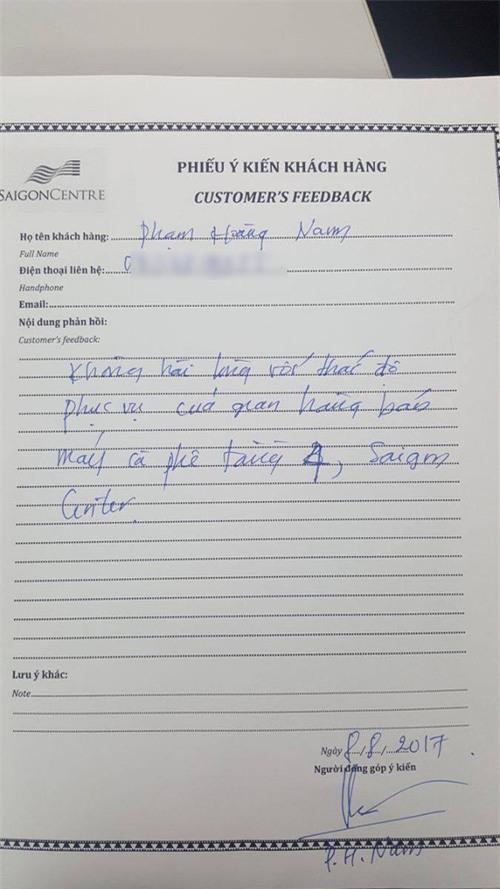 SAIGON CENTRE
PHIẾU Ý KIẾN KHÁCH HÀNG
CUSTOMER'S FEEDBACK
Họ tên khách hàng: Phạm Hoàng Nam
Full Name
Điện thoại liên hệ: 0
Handphone
Email:
Nội dung phản hồi:
Customer's feedback:
Không hài lòng với thái độ
phục vụ của gian hàng bán
máy cà phê tầng 4, Saigon
Center.
Lưu ý khác:
Note
Ngày 8/8/2017
Người đóng góp ý kiến
P.H. Nam